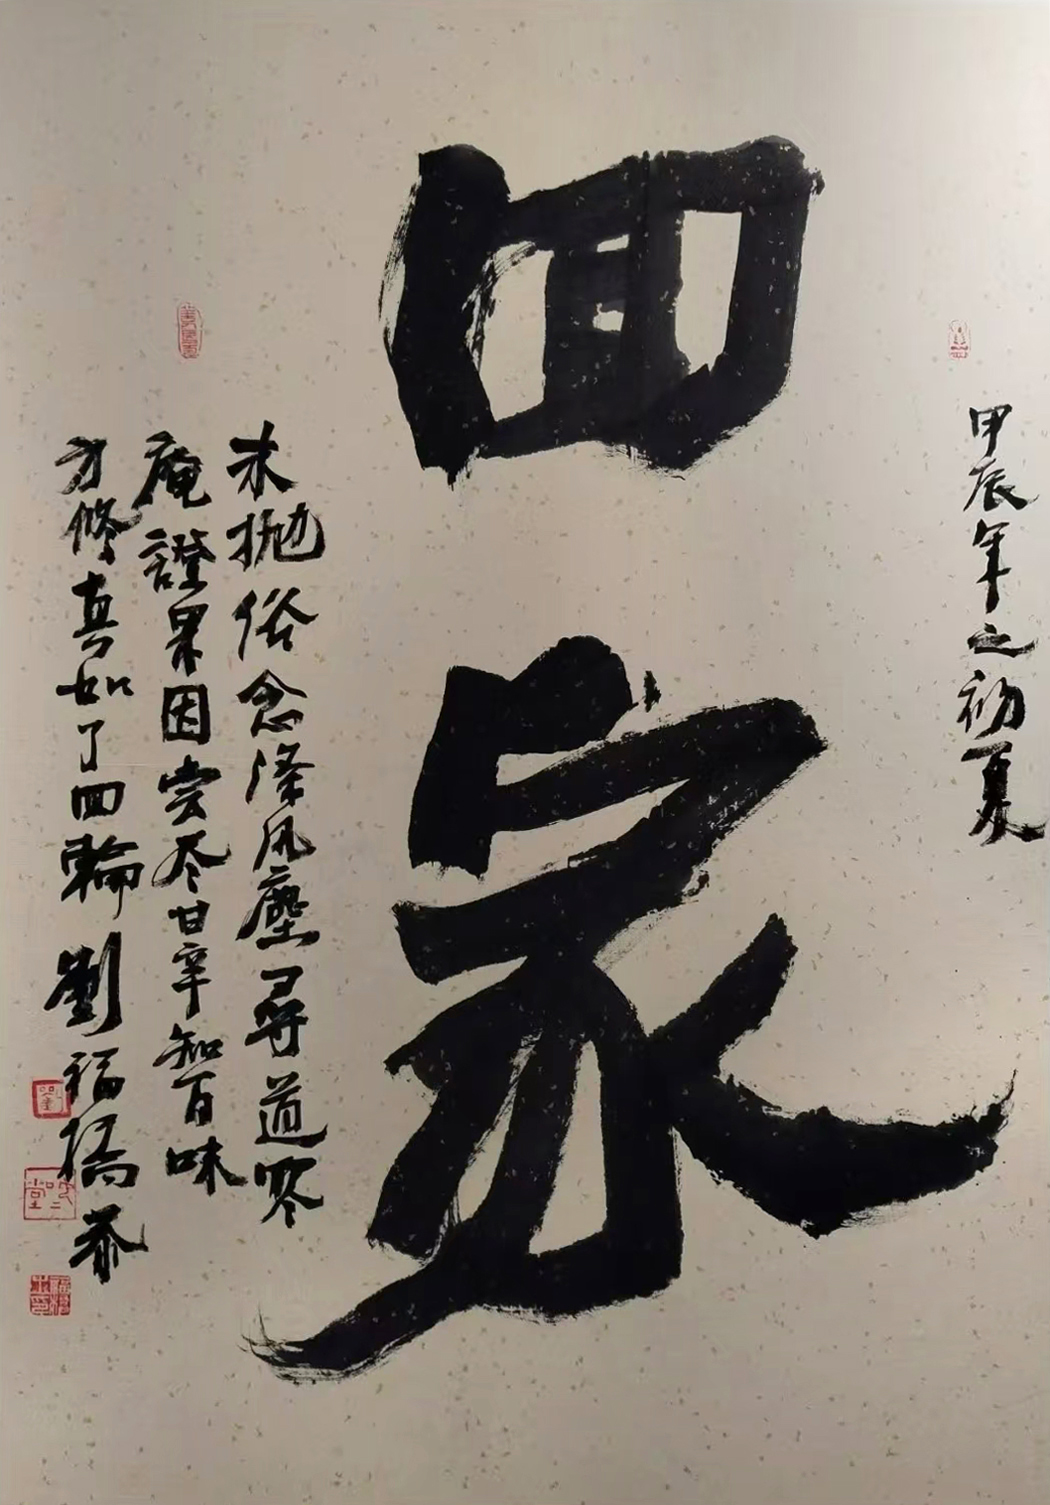 甲辰年之初夏
回家
未抛俗念淨风塵尋道寒
庵證果因尝尽甘辛知百味
方修真如了回輪劉福橋恭